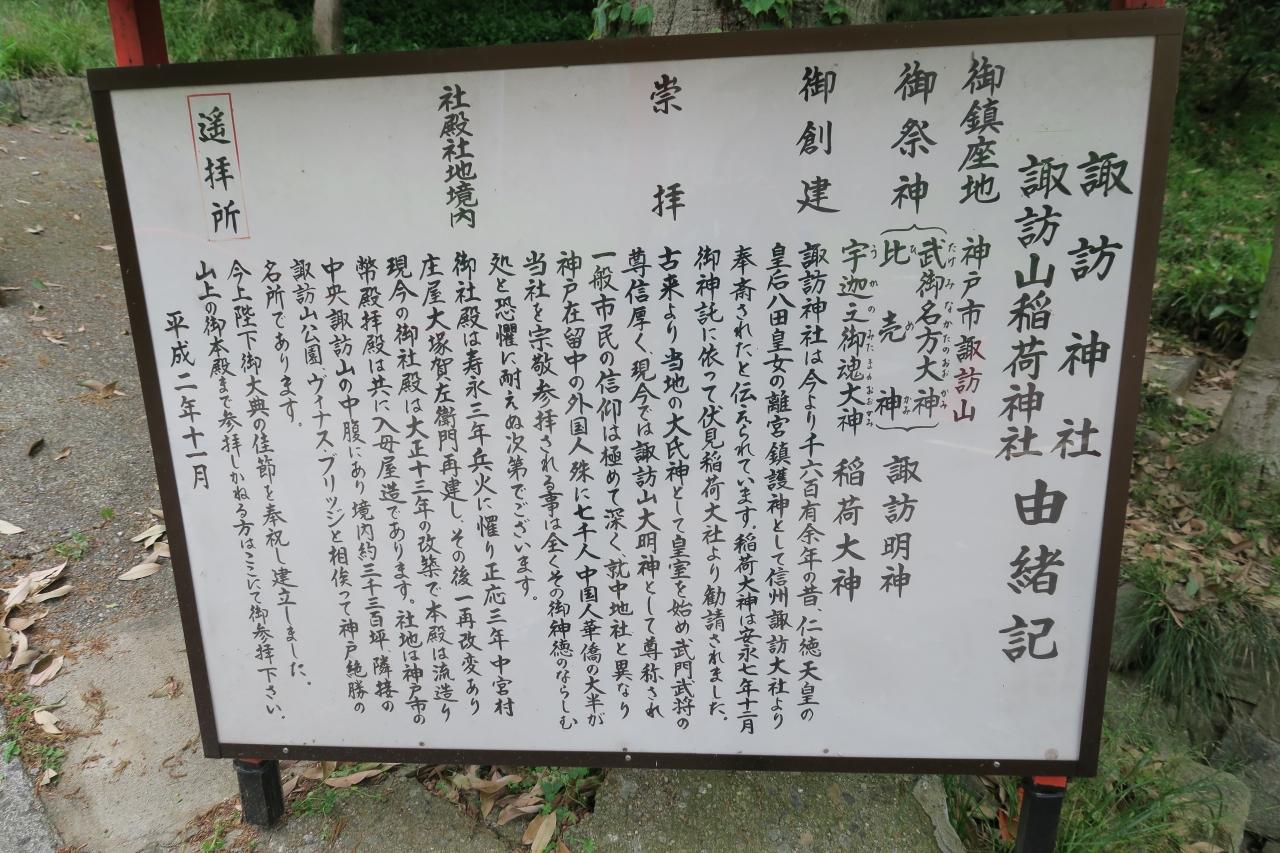 諏訪神社
諏訪山稲荷神社 由緒記
御鎮座地 神戸市諏訪山
御祭神 武御名方大神
たけみなかたのおおかみ
比売神 諏訪明神
ひめかみ
宇迦之御魂大神 稲荷大神
うかのみたまのおおかみ
御創建 諏訪神社は今より千六百有余年の昔、仁徳天皇の
皇后八田皇女の離宮鎮護神として信州諏訪大社より
奉斎されたと伝えられています。稲荷大神は安永七年十二月
御神託に依って伏見稲荷大社より勧請されました。
崇拝 古来より当地の大氏神として皇室を始め武門武将の
尊信厚く、現今では諏訪山大明神として尊称され
一般市民の信仰は極めて深く、就中地社と異なり
神戸在留中の外国人殊に七千人中国人華僑の大半が
当社を宗敬参拝される事は全くその御神徳のならしむ
処と恐懼に耐えぬ次第でございます。
社殿社地境内 御社殿は寿永三年兵火に罹り正応三年中宮村
庄屋大塚賀左衛門再建し、その後一再改変あり
現今の御社殿は大正十三年の改築で本殿は流造り
幣殿拝殿は共に入母屋造であります。社地は神戸市の
中央諏訪山の中腹にあり境内約三千三百坪隣接の
諏訪山公園、ヴィナスブリッジと相俟って神戸絶勝の
名所であります。
遥拝所 今上陛下御大典の佳節を奉祝し建立しました。
山上の御本殿まで参拝しかねる方はここにて御参拝下さい。
平成二年十一月